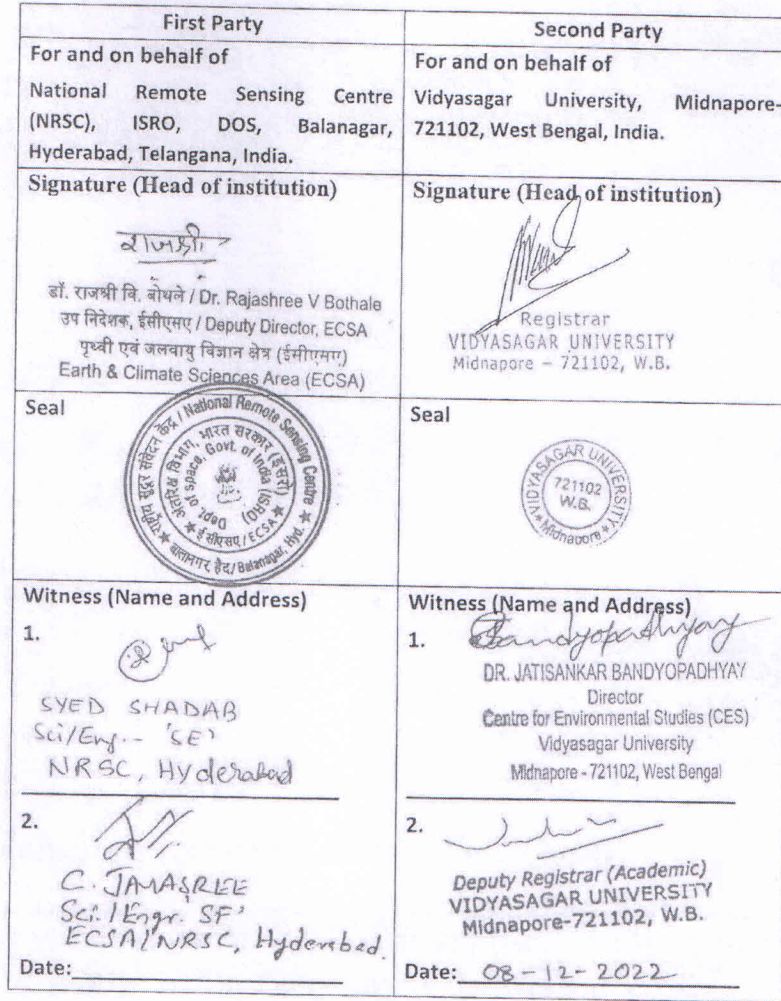 First Party
Second Party
For and on behalf of
National Remote Sensing Centre
(NRSC), ISRO, DOS, Balanagar,
Hyderabad, Telangana, India.
For and on behalf of
Vidyasagar University, Midnapore-
721102, West Bengal, India.
Signature (Head of institution)
राजश्री
डॉ. राजश्री वि. बोथले / Dr. Rajashree V Bothale
उप निदेशक, ईसीएसए / Deputy Director, ECSA
पृथ्वी एवं जलवायु विज्ञान क्षेत्र (ईसीएसए)
Earth & Climate Sciences Area (ECSA)
Signature (Head of institution)
Registrar
VIDYASAGAR UNIVERSITY
Midnapore - 721102, W.B.
Seal
राष्ट्रीय सुदूर संवेदन केंद्र / National Remote Sensing Centre
बालानगर, हैद/ Balanagar, Hyd.
अंतरिक्ष विभाग, भारत सरकार (इसरो)
Dept. of space, Govt. of India (ISRO)
ईसीएसए / ECSA
Seal
VIDYASAGAR UNIVERSITY
721102
W.B.
Midnapore
Witness (Name and Address)
1.
SYED SHADAB
Sci/Eng.- 'SE'
NRSC, Hyderabad
2.
C. JAYASREE
Sci./Engr. SF'
ECSA/NRSC, Hyderabad.
Date:
Witness (Name and Address)
1. Bandyopadhyay
DR. JATISANKAR BANDYOPADHYAY
Director
Centre for Environmental Studies (CES)
Vidyasagar University
Midnapore - 721102, West Bengal
2.
Deputy Registrar (Academic)
VIDYASAGAR UNIVERSITY
Midnapore-721102, W.B.
Date: 08-12-2022